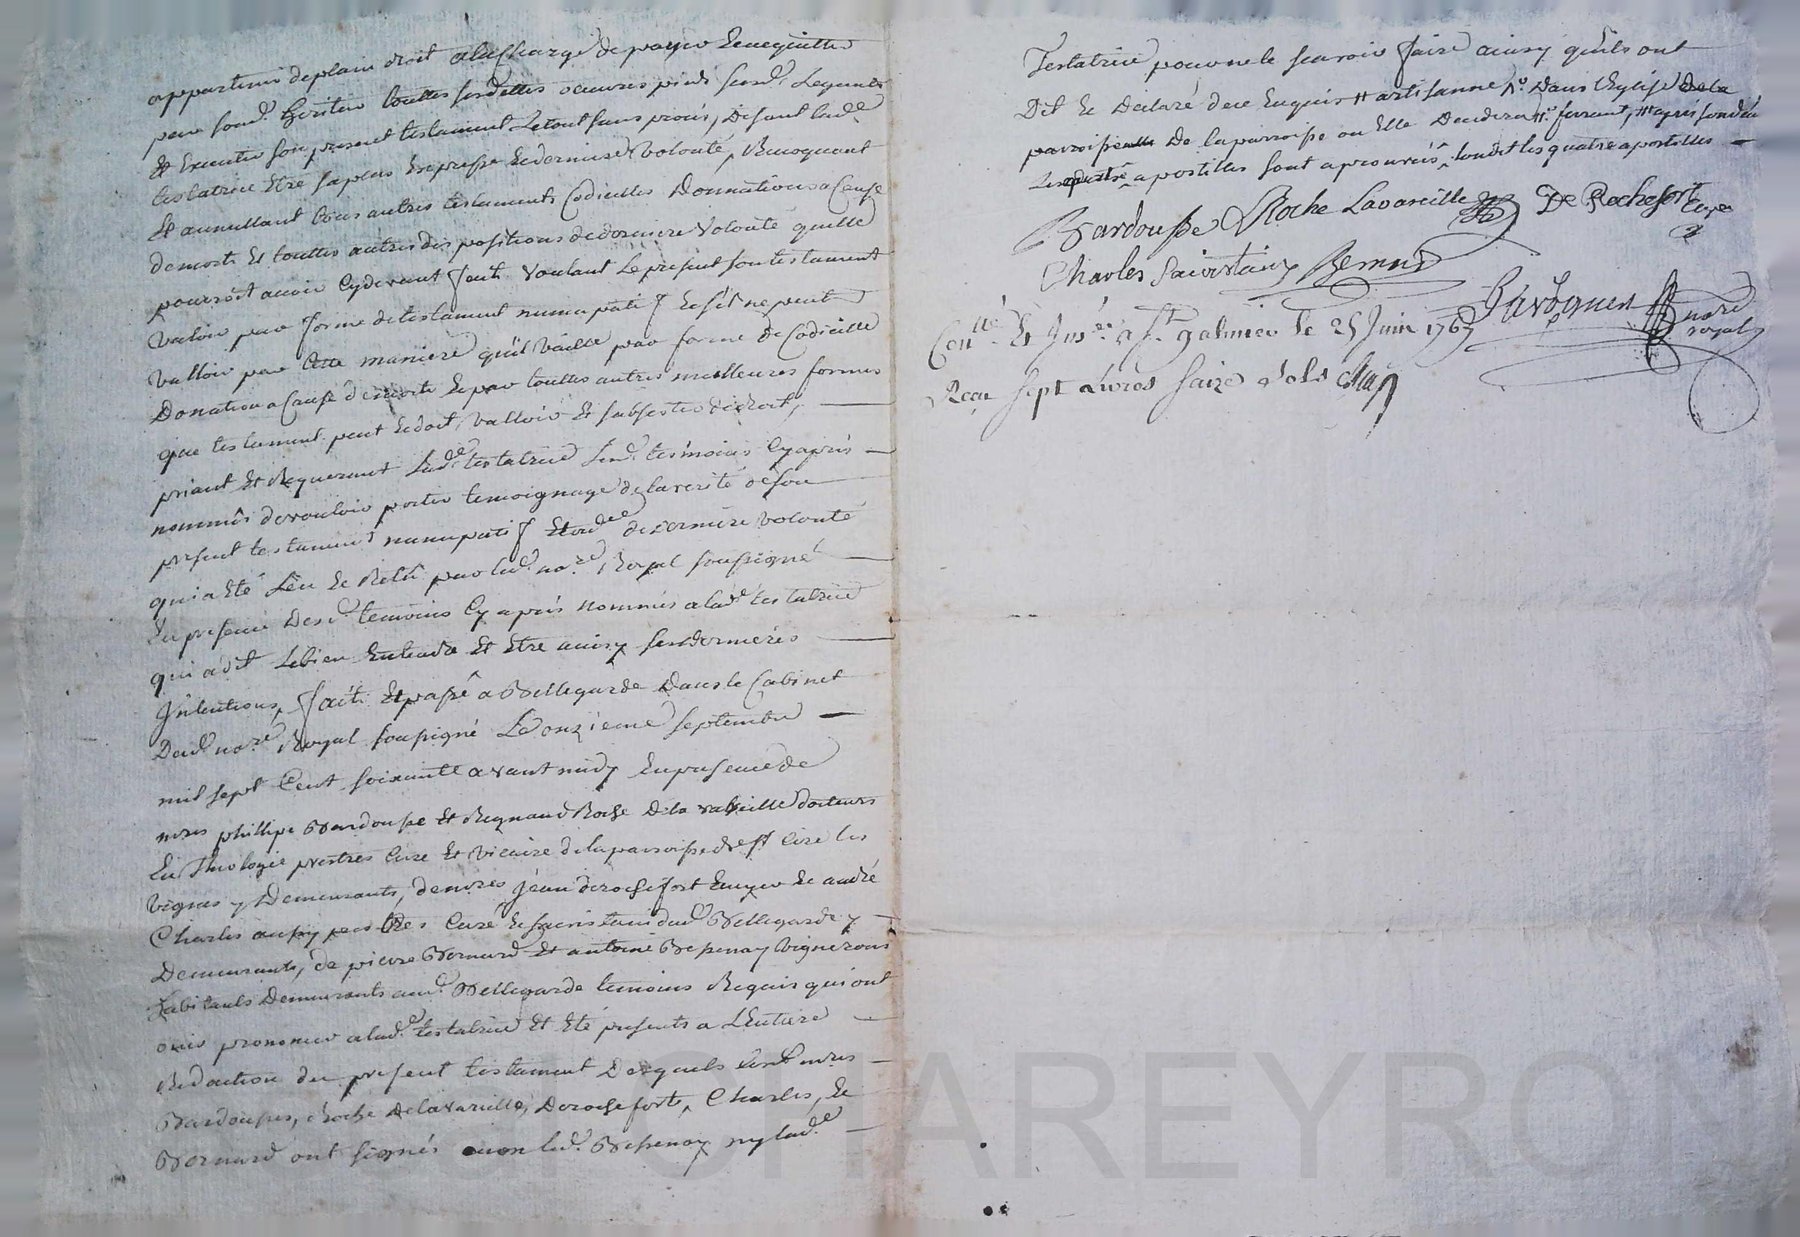 appartenir de plain droit a la Charge de payer Et acquitter
par sond. heritier touttes sesdittes oeuvres pies sesd. Legants
Et Executer son present testament Le tout sans procès, Disant lad.e
testatrice Etre sa plus Expresse Et derniere volonté, Revoquant
Et annullant tous autres testaments Codicilles Donnations a Cause
de mort Et touttes autres dispositions de derniere volonté quelle
pourroit avoir Cydevant fait voulant Le present son testament
valoir par forme de testament nuncupatif Et s'il ne peut
valloir par Cette maniere qu'il vaille par forme de Codicille
Donation a Cause de mort Et par touttes autres meilleures formes
que testament peut Et doit valloir Et subsister de droit,
priant Et Requerant Lad.e testatrice Lesd. témoins Cyaprès
nommés de vouloir porter temoignage de la verité de son
present testament nuncupatif Et ord.ce de derniere volonté
qui a Eté Leu Et Relu par led. no.re Royal soussigné
En presence Desd. temoins Cy après nommés a lad.e testatrice
qui a dit Lebien Entendre Et Etre ainsy ses dernieres
Intentions, fait Et passé a Bellegarde Dans le Cabinet
Dud. no.re Royal soussigné Le onzieme septembre
mil sept Cent soixante avant midy En presence de
mres phillipe Bardousse Et Regnaud Roche De la vareille docteurs
En Theologie prestres Curé Et vicaire de la paroisse de st Cire les
vignes y Demeurants, de mres Jean de rochefort Ecuyer Et andré
Charles aussy prestres Curé Et sacristain dud. Bellegarde y
Demeurants, de pierre Bernard Et antoine Bessenay vignerons
habitants Demeurants aud. Bellegarde temoins Requis qui ont
ouir prononcer a lad.e testatrice Et Eté presents a L'Entiere
Redaction du present testament Desquels Lesd. mres
Bardousse, Roche Delavareille, Derochefort, Charles, Et
Bernard ont signés non led. Bessenay ny lad.e
Testatrice pour ne le scavoir faire ainsy quils ont
Dit Et Declaré de ce Enquis # artisanne / Dans L'Eglise De la
paroisse De la parroisse ou Elle Decedera # ferrant, # après son décé
Les apostilles sont approuvés, Lesdit les quatre apostilles
Bardousse Roche Lavareille De Rochefort Cuyer
Charles Sacristain Bernard
Con.llé Et Ins.é a St. galmier le 25 Juin 1767
notre
royal
Reçu sept Livres saize sols
CHAREYRON